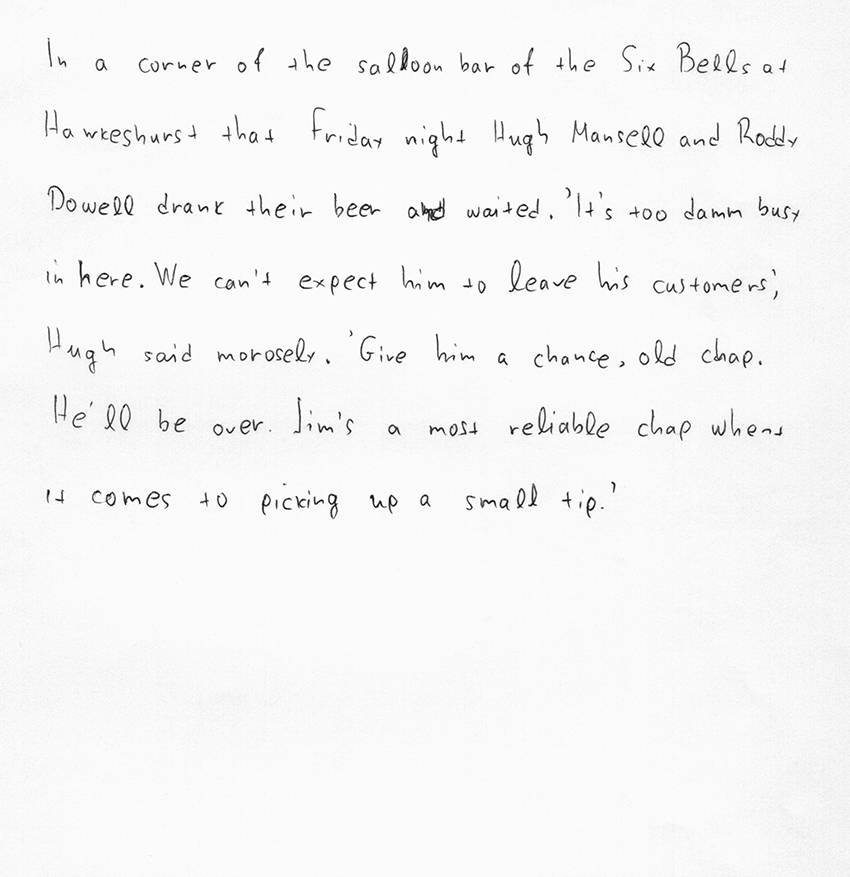 In a corner of the salloon bar of the Six Bells at
Hawkeshurst that Friday night Hugh Mansell and Roddy
Dowell drank their beer and waited. 'It's too damn busy
in here. We can't expect him to leave his customers',
Hugh said morosely. 'Give him a chance, old chap.
He'll be over. Jim's a most reliable chap when
it comes to picking up a small tip.'